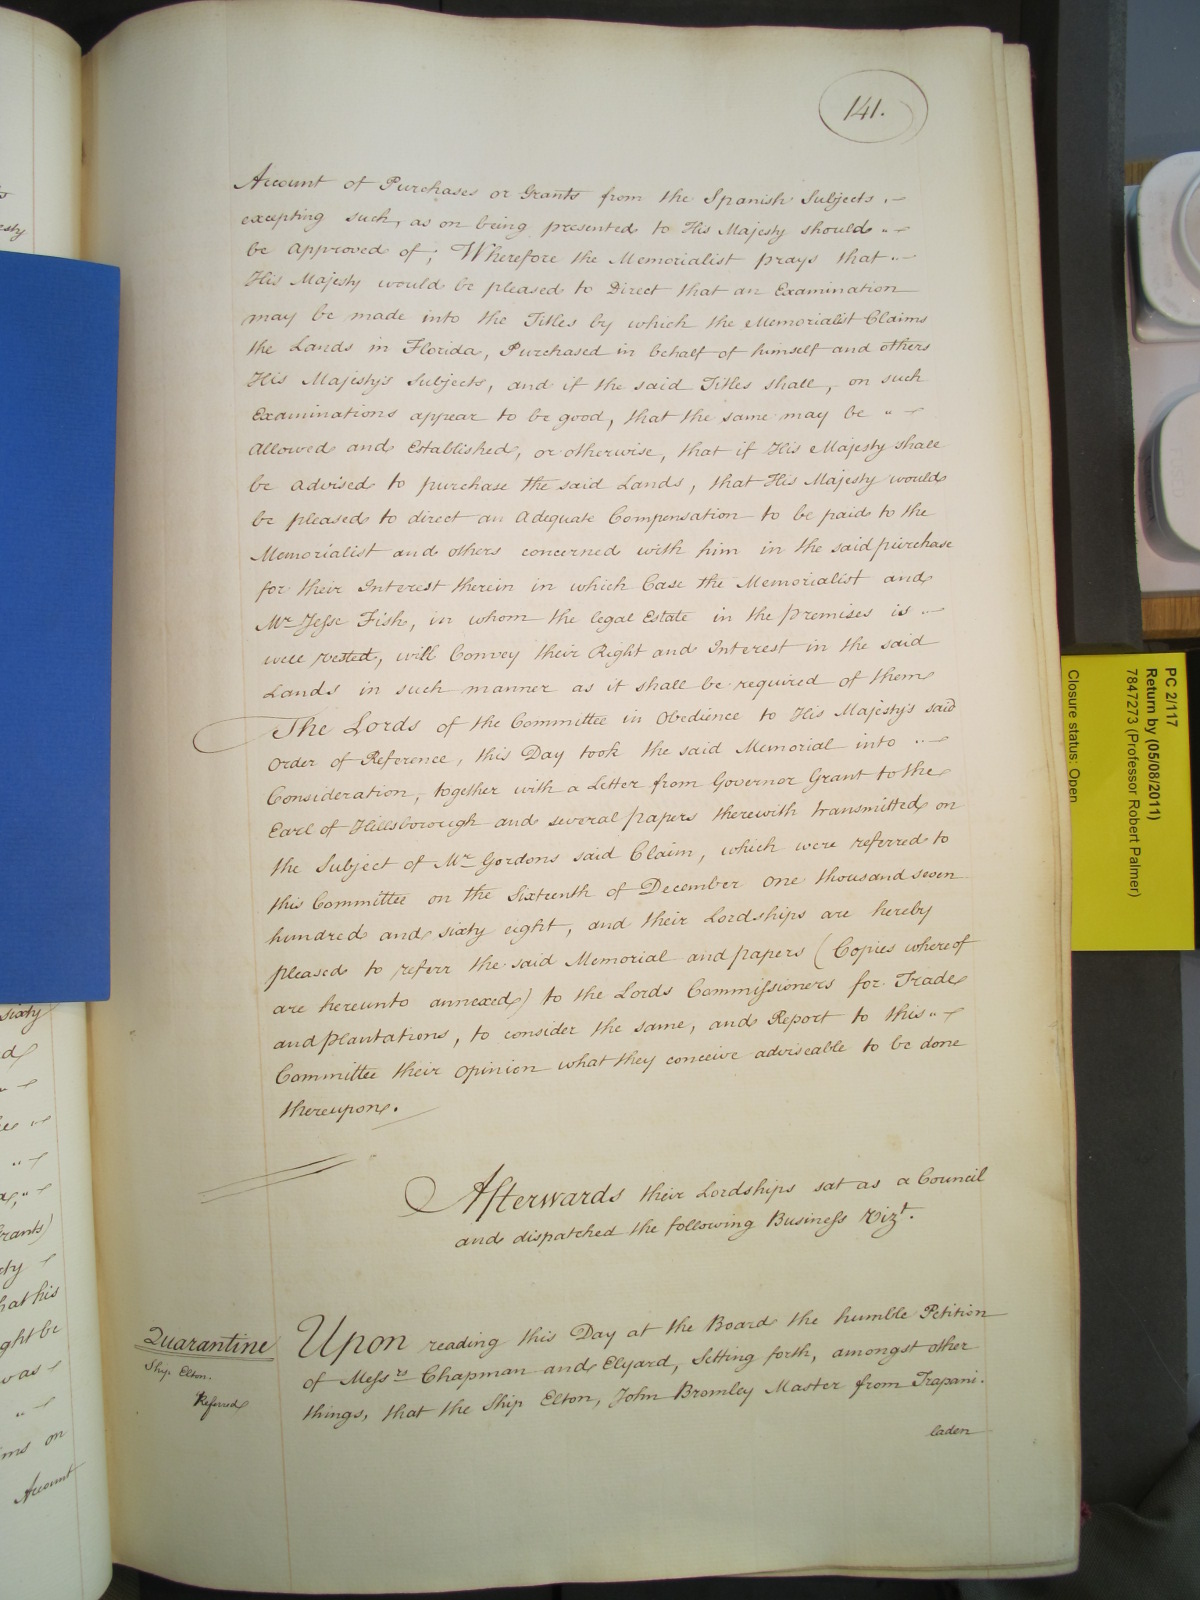 141.
Account of Purchases or Grants from the Spanish Subjects
excepting such, as on being presented to His Majesty should
be Approved of; Wherefore the Memorialist prays that
His Majesty would be pleased to Direct that an Examination
may be made into the Titles by which the Memorialist Claims
the Lands in Florida, Purchased in behalf of himself and others
His Majesty's Subjects, and if the said Titles shall, on such
Examinations appear to be good, that the same may be
Allowed and Established, or otherwise, that if His Majesty shall
be advised to purchase the said Lands, that His Majesty would
be pleased to direct an Adequate Compensation to be paid to the
Memorialist and others concerned with him in the said purchase
for their Interest therein in which Case the Memorialist and
Mr Jesse Fish, in whom the legal Estate in the premises is
were vested, will Convey their Right and Interest in the said
Lands in such manner as it shall be required of them
The Lords of the Committee in Obedience to His Majesty's said
Order of Reference, this Day took the said Memorial into
Consideration, together with a Letter from Governor Grant to the
Earl of Hillsborough and several papers therewith transmitted on
the Subject of Mr Gordons said Claim, which were referred to
this Committee on the Sixteenth of December One thousand seven
hundred and sixty eight, and their Lordships are hereby
pleased to referr the said Memorial and papers (Copies whereof
are hereunto annexed) to the Lords Commissioners for Trade
and Plantations, to consider the same, and Report to this
Committee their Opinion what they conceive adviseable to be done
thereupon.
Afterwards their Lordships sat as a Council
and dispatched the following Business Vizt.
Quarantine
Ship Elton.
Referred
Upon reading this Day at the Board the humble Petition
of Messrs Chapman and Elyard, Setting forth, amongst other
things, that the Ship Elton, John Bromley Master from Trapani
laden
sixty
Grants)
that his
ght be
was
on
Account
PC 2/117
Return by (05/08/2011)
7847273 (Professor Robert Palmer)
Closure status: Open